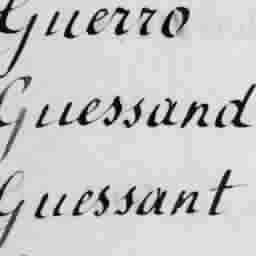 Guerro
Guessand
Guessant